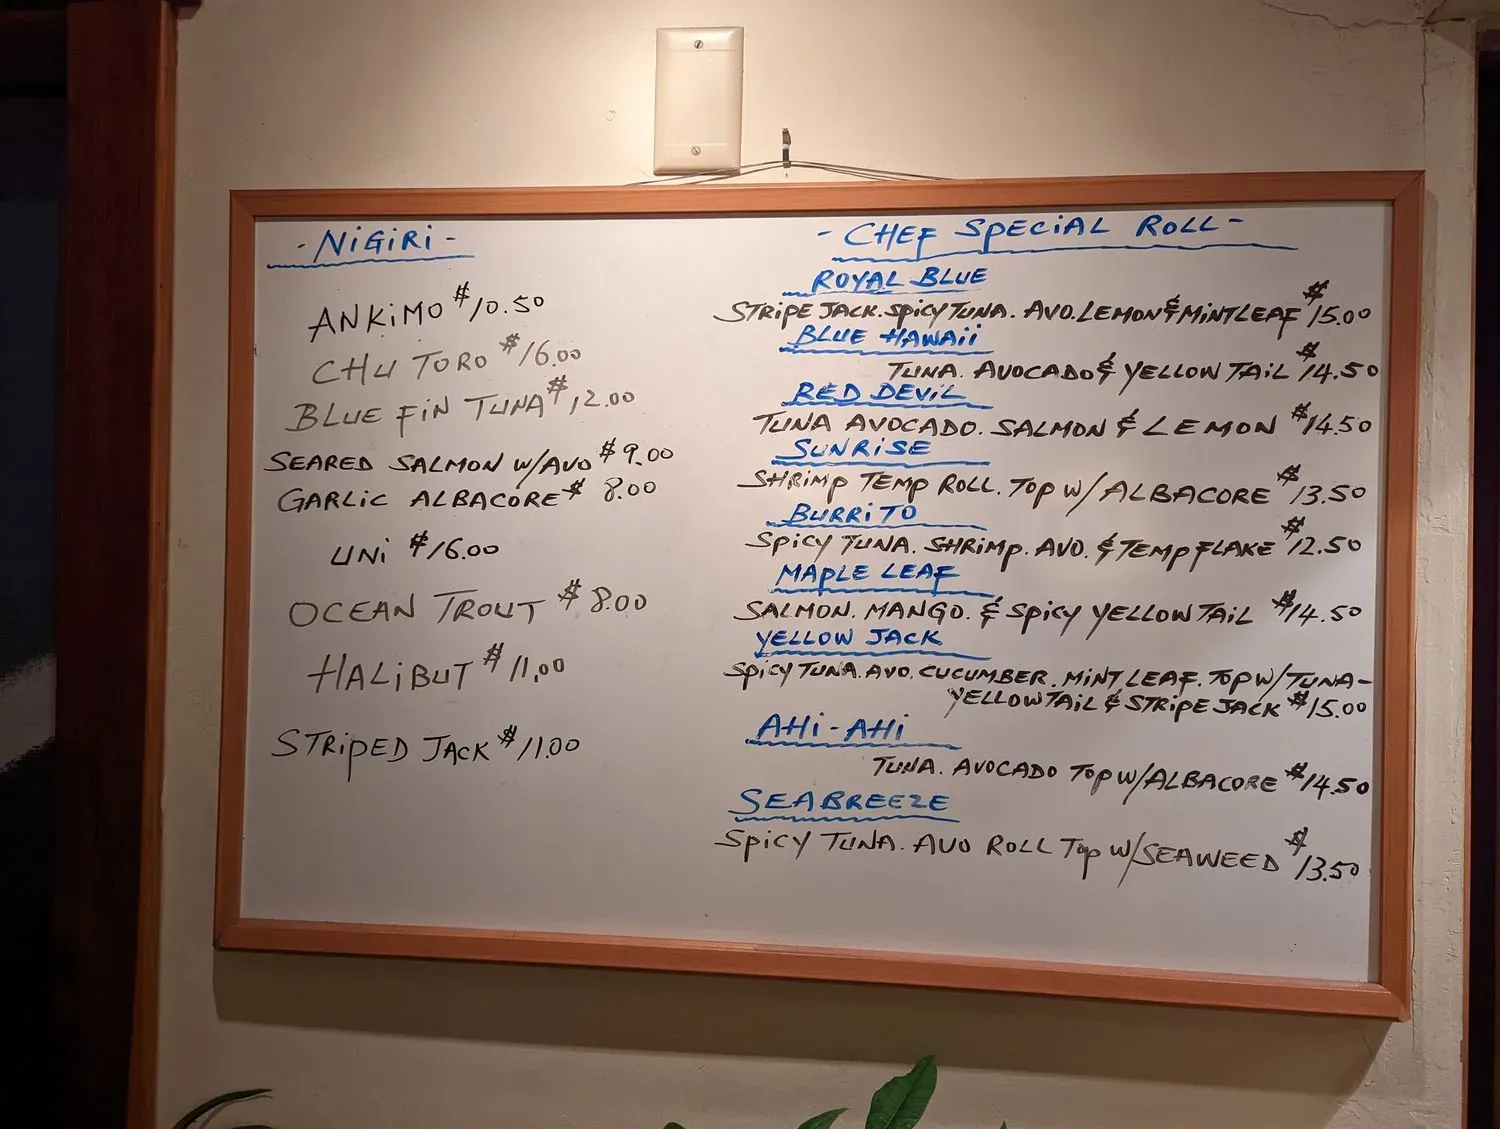 - NiGiRi -
ANKiMO $10.50
CHU TORO $16.00
BLUE FiN TUNA $12.00
SEARED SALMON W/AVO $9.00
GARLIC ALBACORE $8.00
UNi $16.00
OCEAN TROUT $8.00
HALiBUT $11.00
STRiPED JACK $11.00
- CHEF SPECiAL ROLL -
ROYAL BLUE
STRiPE JACK. SPiCY TUNA. AVO. LEMON & MiNT LEAF $15.00
BLUE HAWAii
TUNA. AVOCADO & YELLOW TAiL $14.50
RED DEViL
TUNA AVOCADO. SALMON & LEMON $14.50
SUNRiSE
SHRiMP TEMP ROLL. TOP W/ALBACORE $13.50
BURRiTO
SPiCY TUNA. SHRiMP. AVO. & TEMP FLAKE $12.50
MAPLE LEAF
SALMON. MANGO. & SPiCY YELLOW TAiL $14.50
YELLOW JACK
SPiCY TUNA. AVO. CUCUMBER. MiNT LEAF. TOP W/TUNA-
YELLOW TAiL & STRiPE JACK $15.00
AHi-AHi
TUNA. AVOCADO TOP W/ALBACORE $14.50
SEABREEZE
SPiCY TUNA. AVO ROLL TOP W/SEAWEED $13.50